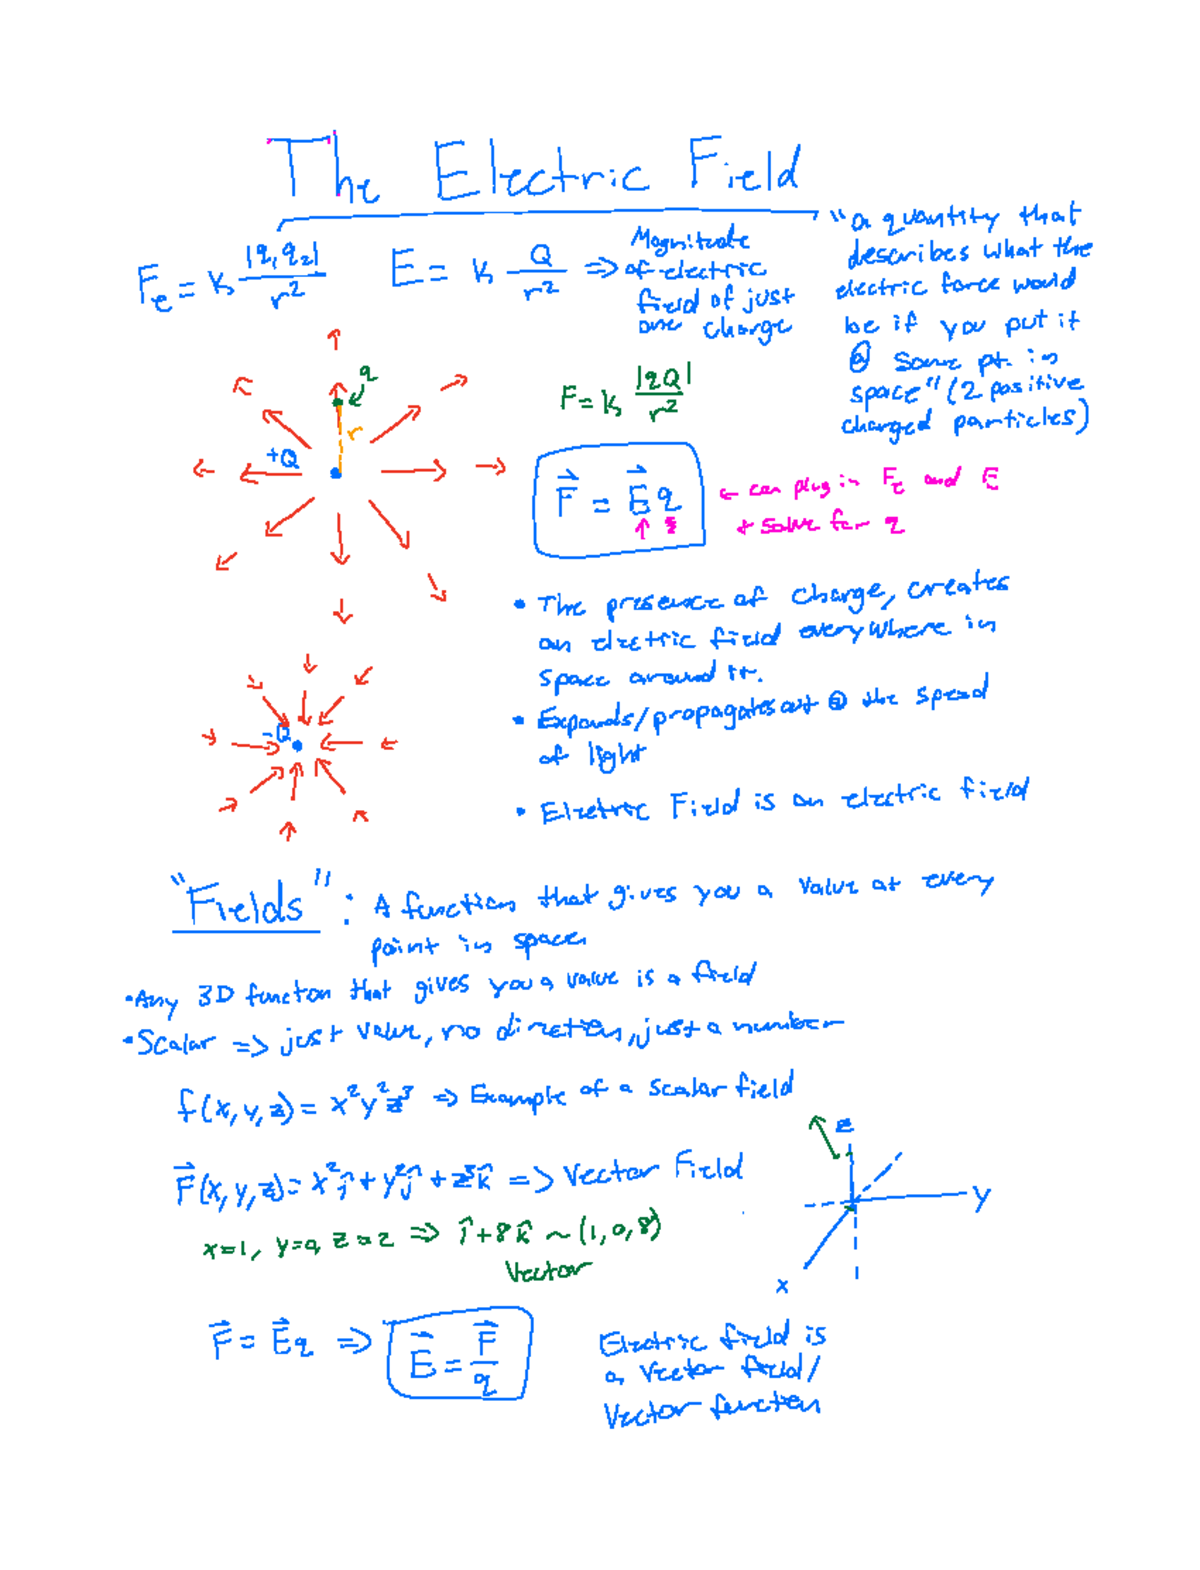 The Electric Field
F_e = k |q₁q₂| / r²
E = k Q / r² => Magnitude
of electric
field of just
one charge
"a quantity that
describes what the
electric force would
be if you put it
@ some pt. in
space" (2 positive
charged particles)
q
r
+Q
F = k |qQ| / r²
F⃗ = E⃗q
← can plug in F_e and E
+ solve for q
• The presence of charge, creates
an electric field everywhere in
space around it.
• Expands/propagates out @ the speed
of light
• Electric Field is an electric field
-Q
"Fields": A function that gives you a value at every
point in space
• Any 3D functon that gives you a value is a field
• Scalar => just value, no direction, just a number
f(x,y,z) = x²y²z³ => Example of a scalar field
F⃗(x,y,z) = x²î + y²ĵ + z³k̂ => Vector Field
x=1, y=0, z=2 => î+8k̂ ~ (1,0,8)
Vector
z
y
x
F⃗ = E⃗q => E⃗ = F⃗ / q
Electric field is
a vector field/
Vector function